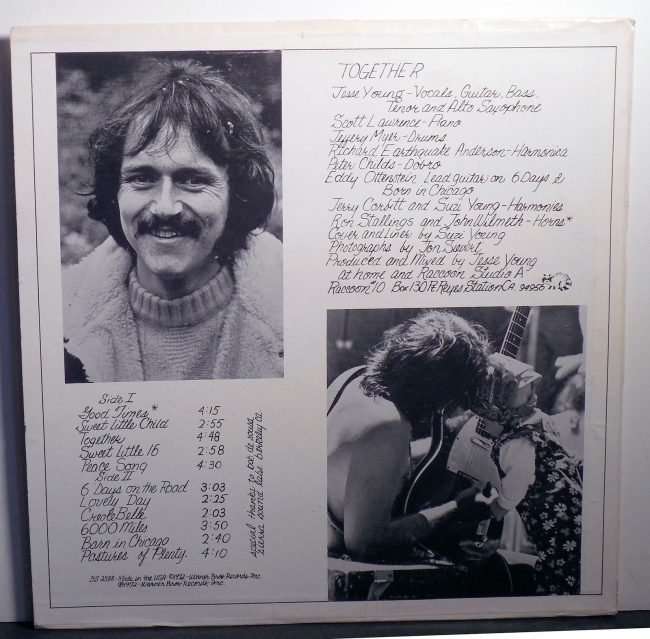 TOGETHER
Jesse Young - Vocals, Guitar, Bass,
Tenor and Alto Saxophone
Scott Lawrence - Piano
Jeffery Myer - Drums
Richard Earthquake Anderson - Harmonica
Peter Childs - Dobro
Eddy Ottenstein Lead guitar on 6 Days &
Born in Chicago
Jerry Corbitt and Suzi Young - Harmonies
Ron Stallings and John Wilmeth - Horns*
Cover and Liner by Suzi Young
Photographs by Jon Sievert
Produced and Mixed by Jesse Young
at home and Raccoon Studio A
Raccoon #10 Box 130 Pt. Reyes Station CA. 94956
Side I
Good Times* 4:15
Sweet Little Child 2:55
Together 4:48
Sweet Little 16 2:58
Peace Song 4:30
Side II
6 Days on the Road 3:03
Lovely Day 2:25
Creole Belle 2:03
6000 Miles 3:50
Born in Chicago 2:40
Pastures of Plenty 4:10
special thanks to bob de sousa
sierra sound labs berkeley ca
BS 2588 - Made in the USA ©1972 - Warner Bros. Records Inc.
℗1972 - Warner Bros. Records, Inc.